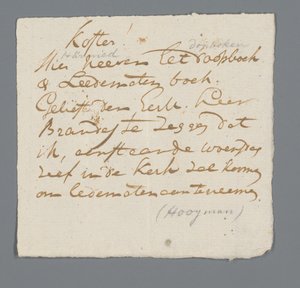 Koster!
Hier neevens het doopboek
& Ledematen boek.
Gelieft den Eerw. Heer
Brandes te zeggen dat
ik, aanstaande woensdag
zelf in de Kerk zal komen
om ledematen aan te neemen
(Hooyman)